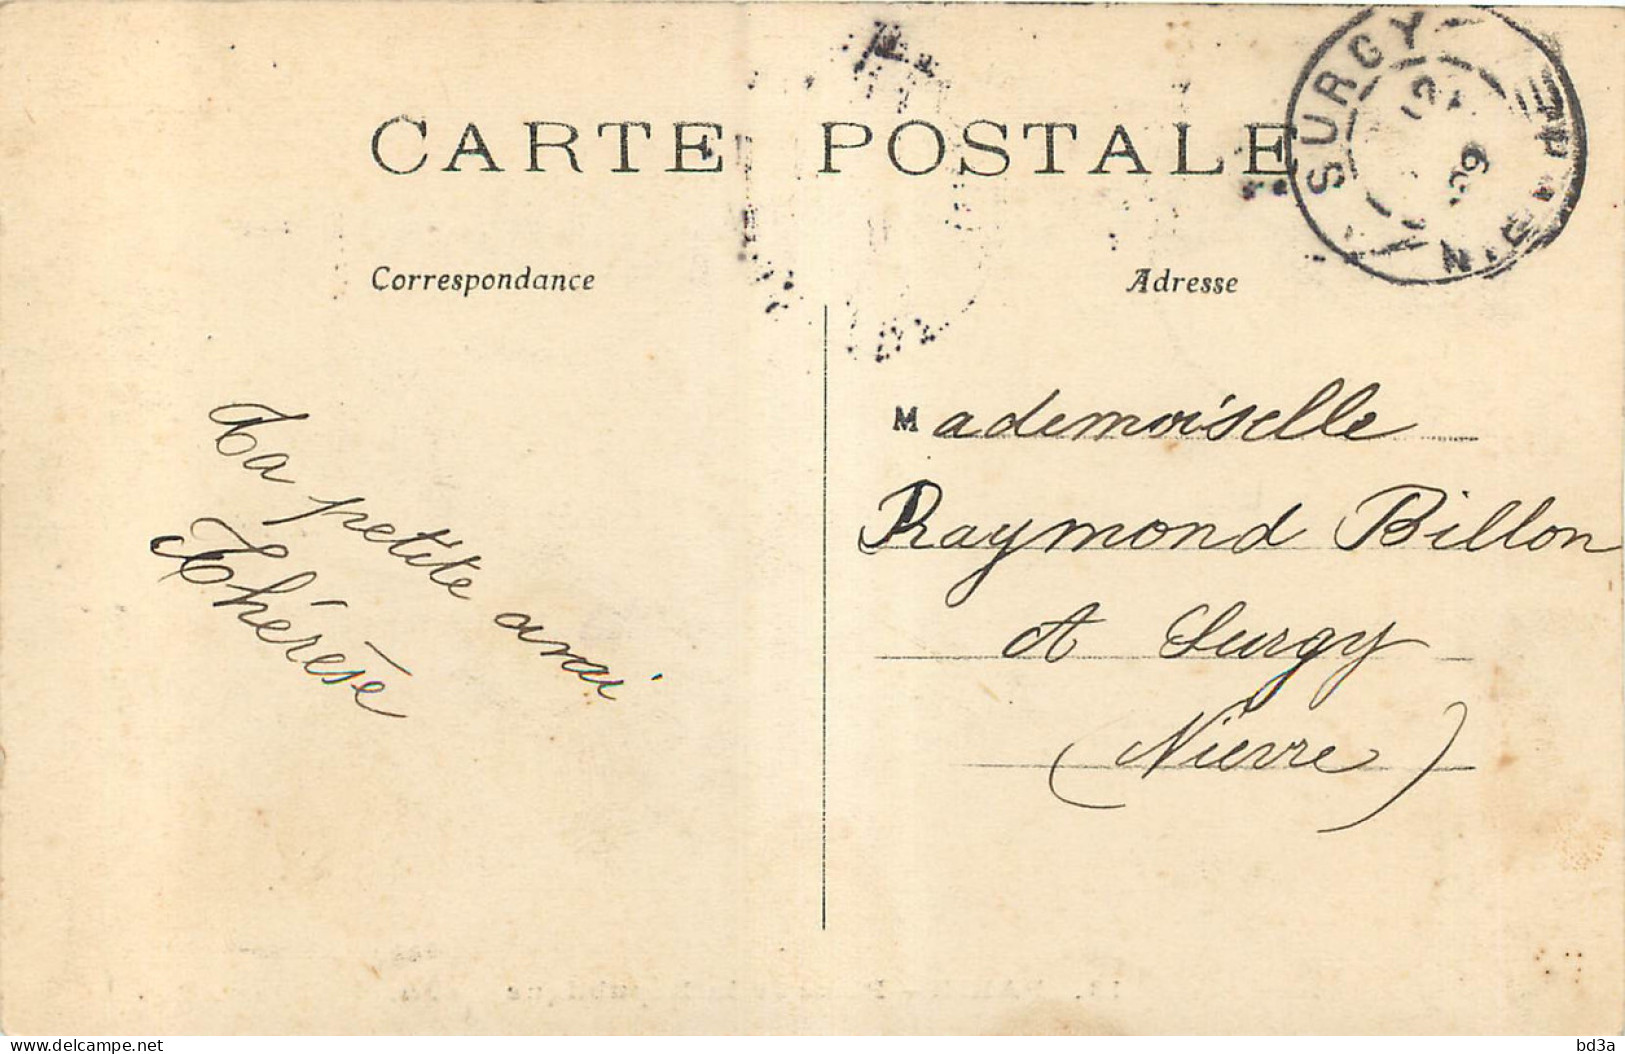 CARTE POSTALE
SURGY
Correspondance
Adresse
Ta petite
amie
Thérèse
Mademoiselle
Raymond Billon
A Surgy
(Nièvre)
delcampe.net
bd3a